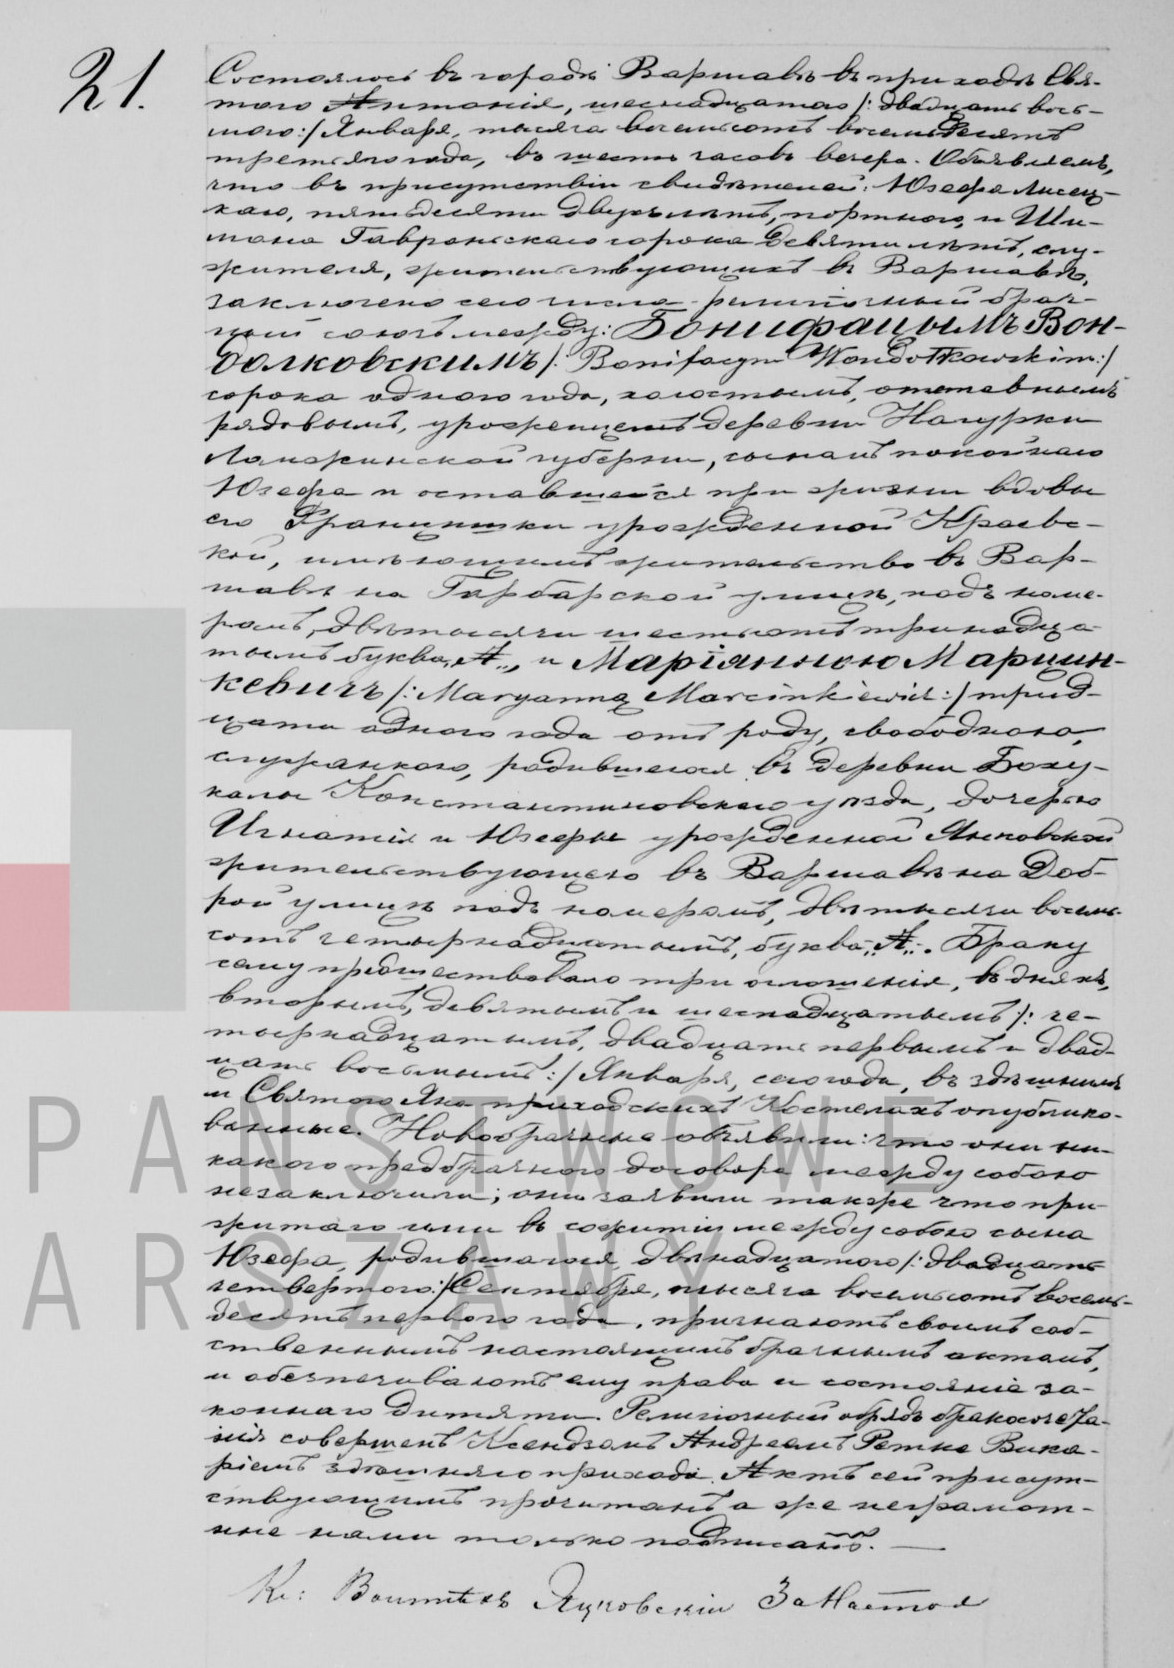 21.
Состоялось въ городѣ Варшавѣ въ приходѣ Свя-
того Антонія, шеснадцатого /: двадцать вось-
мого :/ Января, тысяча восемьсотъ восемьдесятъ
третьяго года, въ шесть часовъ вечера. Объявляемъ,
что въ присутствіи свидѣтелей: Юзефа Лисец-
каго, пятьдесяти двухъ лѣтъ, портного, и Ши-
мона Гавронскаго сорока девяти лѣтъ, слу-
жителя, жительствующихъ въ Варшавѣ,
заключено сего числа религіочный брач-
ный союзъ между: Бонифацымъ Вон-
долковскимъ /: Bonifacym Wondołkowskim :/
сорока одного года, холостымъ, отставнымъ
рядовымъ, урожденцемъ деревни Нагурки
Ломжинской губерніи, сыномъ покойнаго
Юзефа и оставшейся при жизни вдовы
его Францишки урожденной Краевс-
кой, имѣющимъ жительство въ Вар-
шавѣ на Гарбарской улицѣ, подъ номе-
ромъ, двѣ тысячи шестьсотъ тринадца-
тымъ буква „А„, и Маріянною Марцин-
кевичъ /: Maryanną Marcinkiewicz :/ трид-
цати одного года отъ роду, свободною,
служанкою, родившеюся въ деревни Боху-
калы Константиновскаго уѣзда, дочерью
Игнатія и Юзефы урожденной Янковской
жительствующею въ Варшавѣ на Доб-
рой улицѣ подъ номеромъ, двѣ тысячи восемь-
сотъ четырнадцатымъ, буква „А„. Браку
сему предшествовало три оглошенія, въ дняхъ,
вторымъ, девятымъ и шеснадцатымъ /: че-
тырнадцатымъ, двадцать первымъ и двад-
цать восьмымъ :/ Января, сего года, въ здѣшнимъ
и Святого Яна приходскихъ Костелахъ опублико-
ванные. Новобрачные объявили: что они ни-
какого предбрачного договора между собою
незаключили; они заявили также что при-
житаго ими въ сожитіи между собою сына
Юзефа, родившагося двѣнадцатого /: двадцать
четвертого :/ Сентября, тысяча восемьсотъ восемь-
десятъ первого года, признаютъ своимъ соб-
ственнымъ настоящимъ брачнымъ актомъ,
и обезпечиваютъ ему права и состояніе за-
коннаго дитяти. Религіочный обрядъ бракосочета-
нія совершенъ Ксендзомъ Андреемъ Ретке Вика-
ріемъ здѣшняго прихода. Актъ сей присут-
ствующимъ прочитанъ а же неграмот-
ные нами только подписанъ. —
Кс: Яцковскій За Настоя